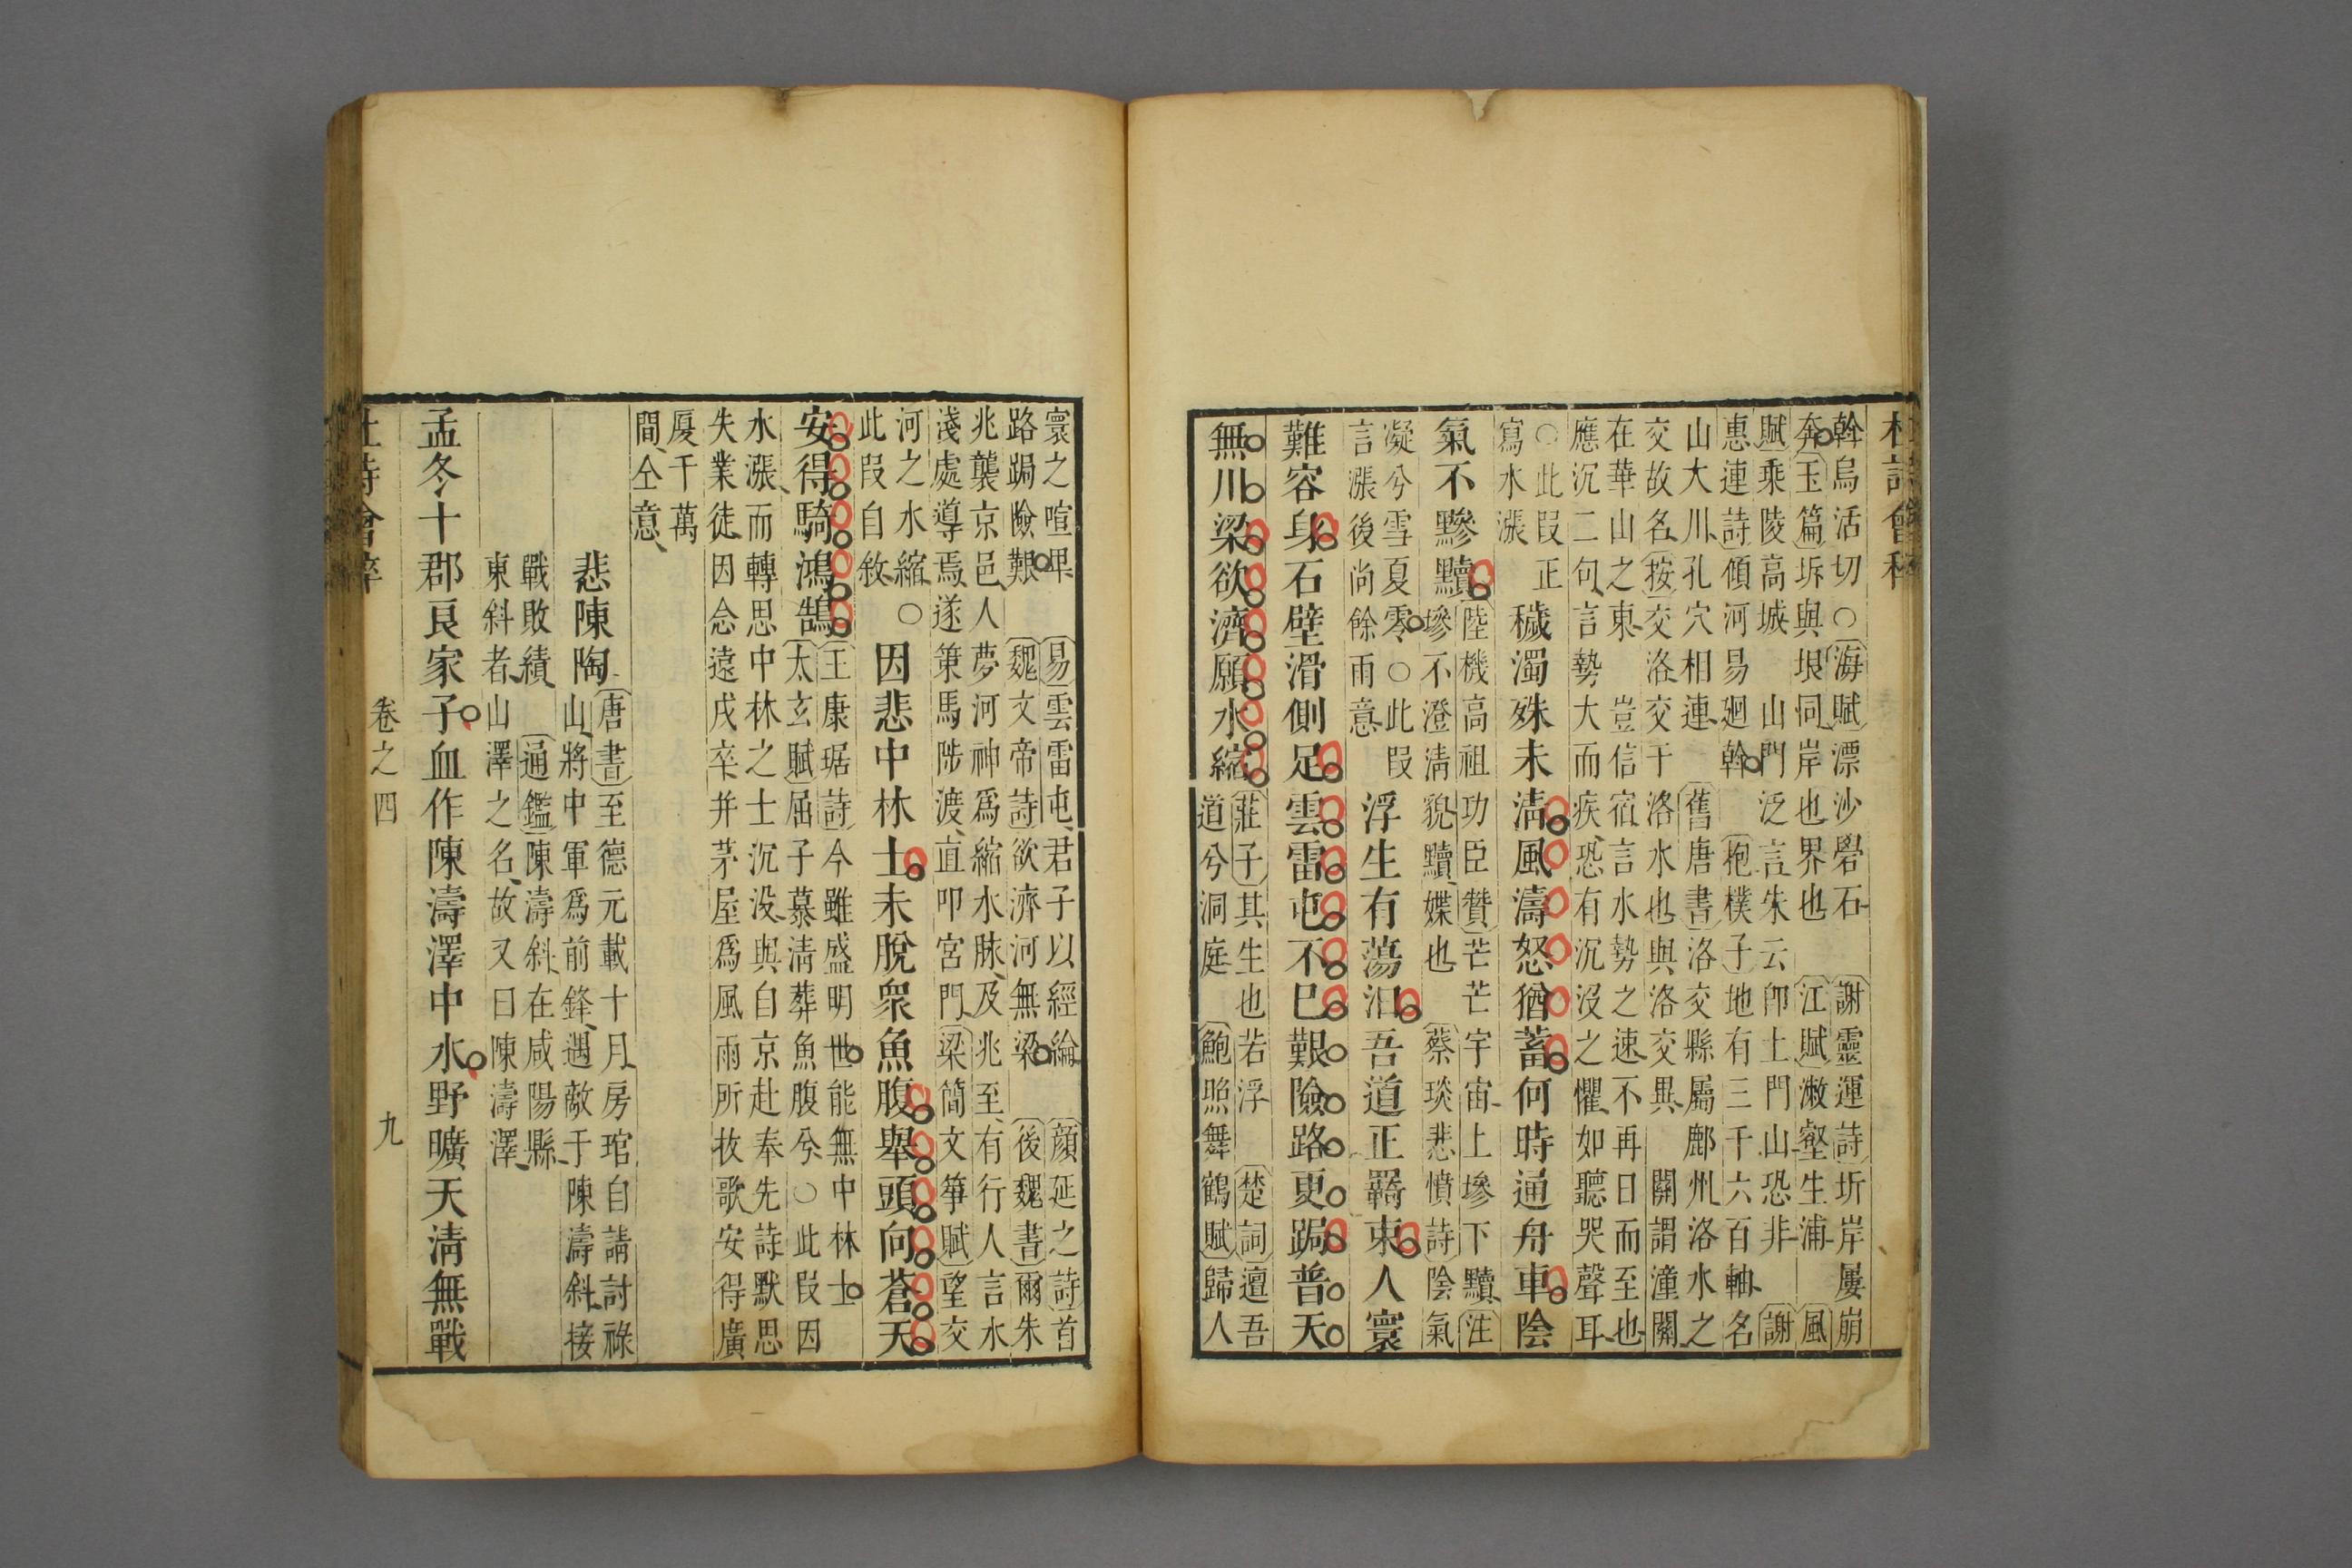 杜詩會粹
斡烏活切○海賦漂沙礐石 謝靈運詩圻岸屢崩
奔玉篇圻與垠同岸也界也 江賦漱壑生浦 風
賦乘陵高城 山門泛言朱云卽土門山恐非 謝
惠連詩傾河易迴斡 抱樸子地有三千六百軸名
山大川孔穴相連 舊唐書洛交縣屬鄜州洛水之
交故名按交洛交干洛水也與洛交異 關謂潼關
在華山之東 豈信宿言水勢之速不再日而至也
應沉二句言勢大而疾恐有沉沒之懼如聽哭聲耳
○此叚正
寫水漲
穢濁殊未清風濤怒猶蓄何時通舟車陰
氣不黲黷
陸機高祖功臣贊芒芒宇宙上墋下黷注
墋不澄清貌黷媟也 蔡琰悲憤詩陰氣
凝兮雪夏零○此叚
言漲後尚餘雨意
浮生有蕩汩吾道正羇束人寰
難容身石壁滑側足雲雷屯不巳艱險路更跼普天
無川梁欲濟願水縮
莊子其生也若浮 楚詞邅吾
道兮洞庭 鮑照舞鶴賦歸人
寰之喧卑 易雲雷屯君子以經綸 顔延之詩首
路跼險艱 魏文帝詩欲濟河無梁 後魏書爾朱
兆襲京邑人夢河神爲縮水脉及兆至有行人言水
淺處導焉遂策馬陟渡直叩宮門梁簡文箏賦望交
河之水縮○
此叚自敘
因悲中林士未脫衆魚腹舉頭向蒼天
安得騎鴻鵠
王康琚詩今雖盛明世能無中林士
太玄賦屈子慕清葬魚腹兮○此叚因
水漲而轉思中林之士沉没與自京赴奉先詩默思
失業徒因念遠戍卒并茅屋爲風雨所拔歌安得廣
厦千萬
間仝意
悲陳陶
唐書至德元載十月房琯自請討祿
山將中軍爲前鋒遇敵于陳濤斜接
戰敗績 通鑑陳濤斜在咸陽縣
東斜者山澤之名故又曰陳濤澤
孟冬十郡良家子血作陳濤澤中水野曠天清無戰
杜詩會粹 卷之四 九